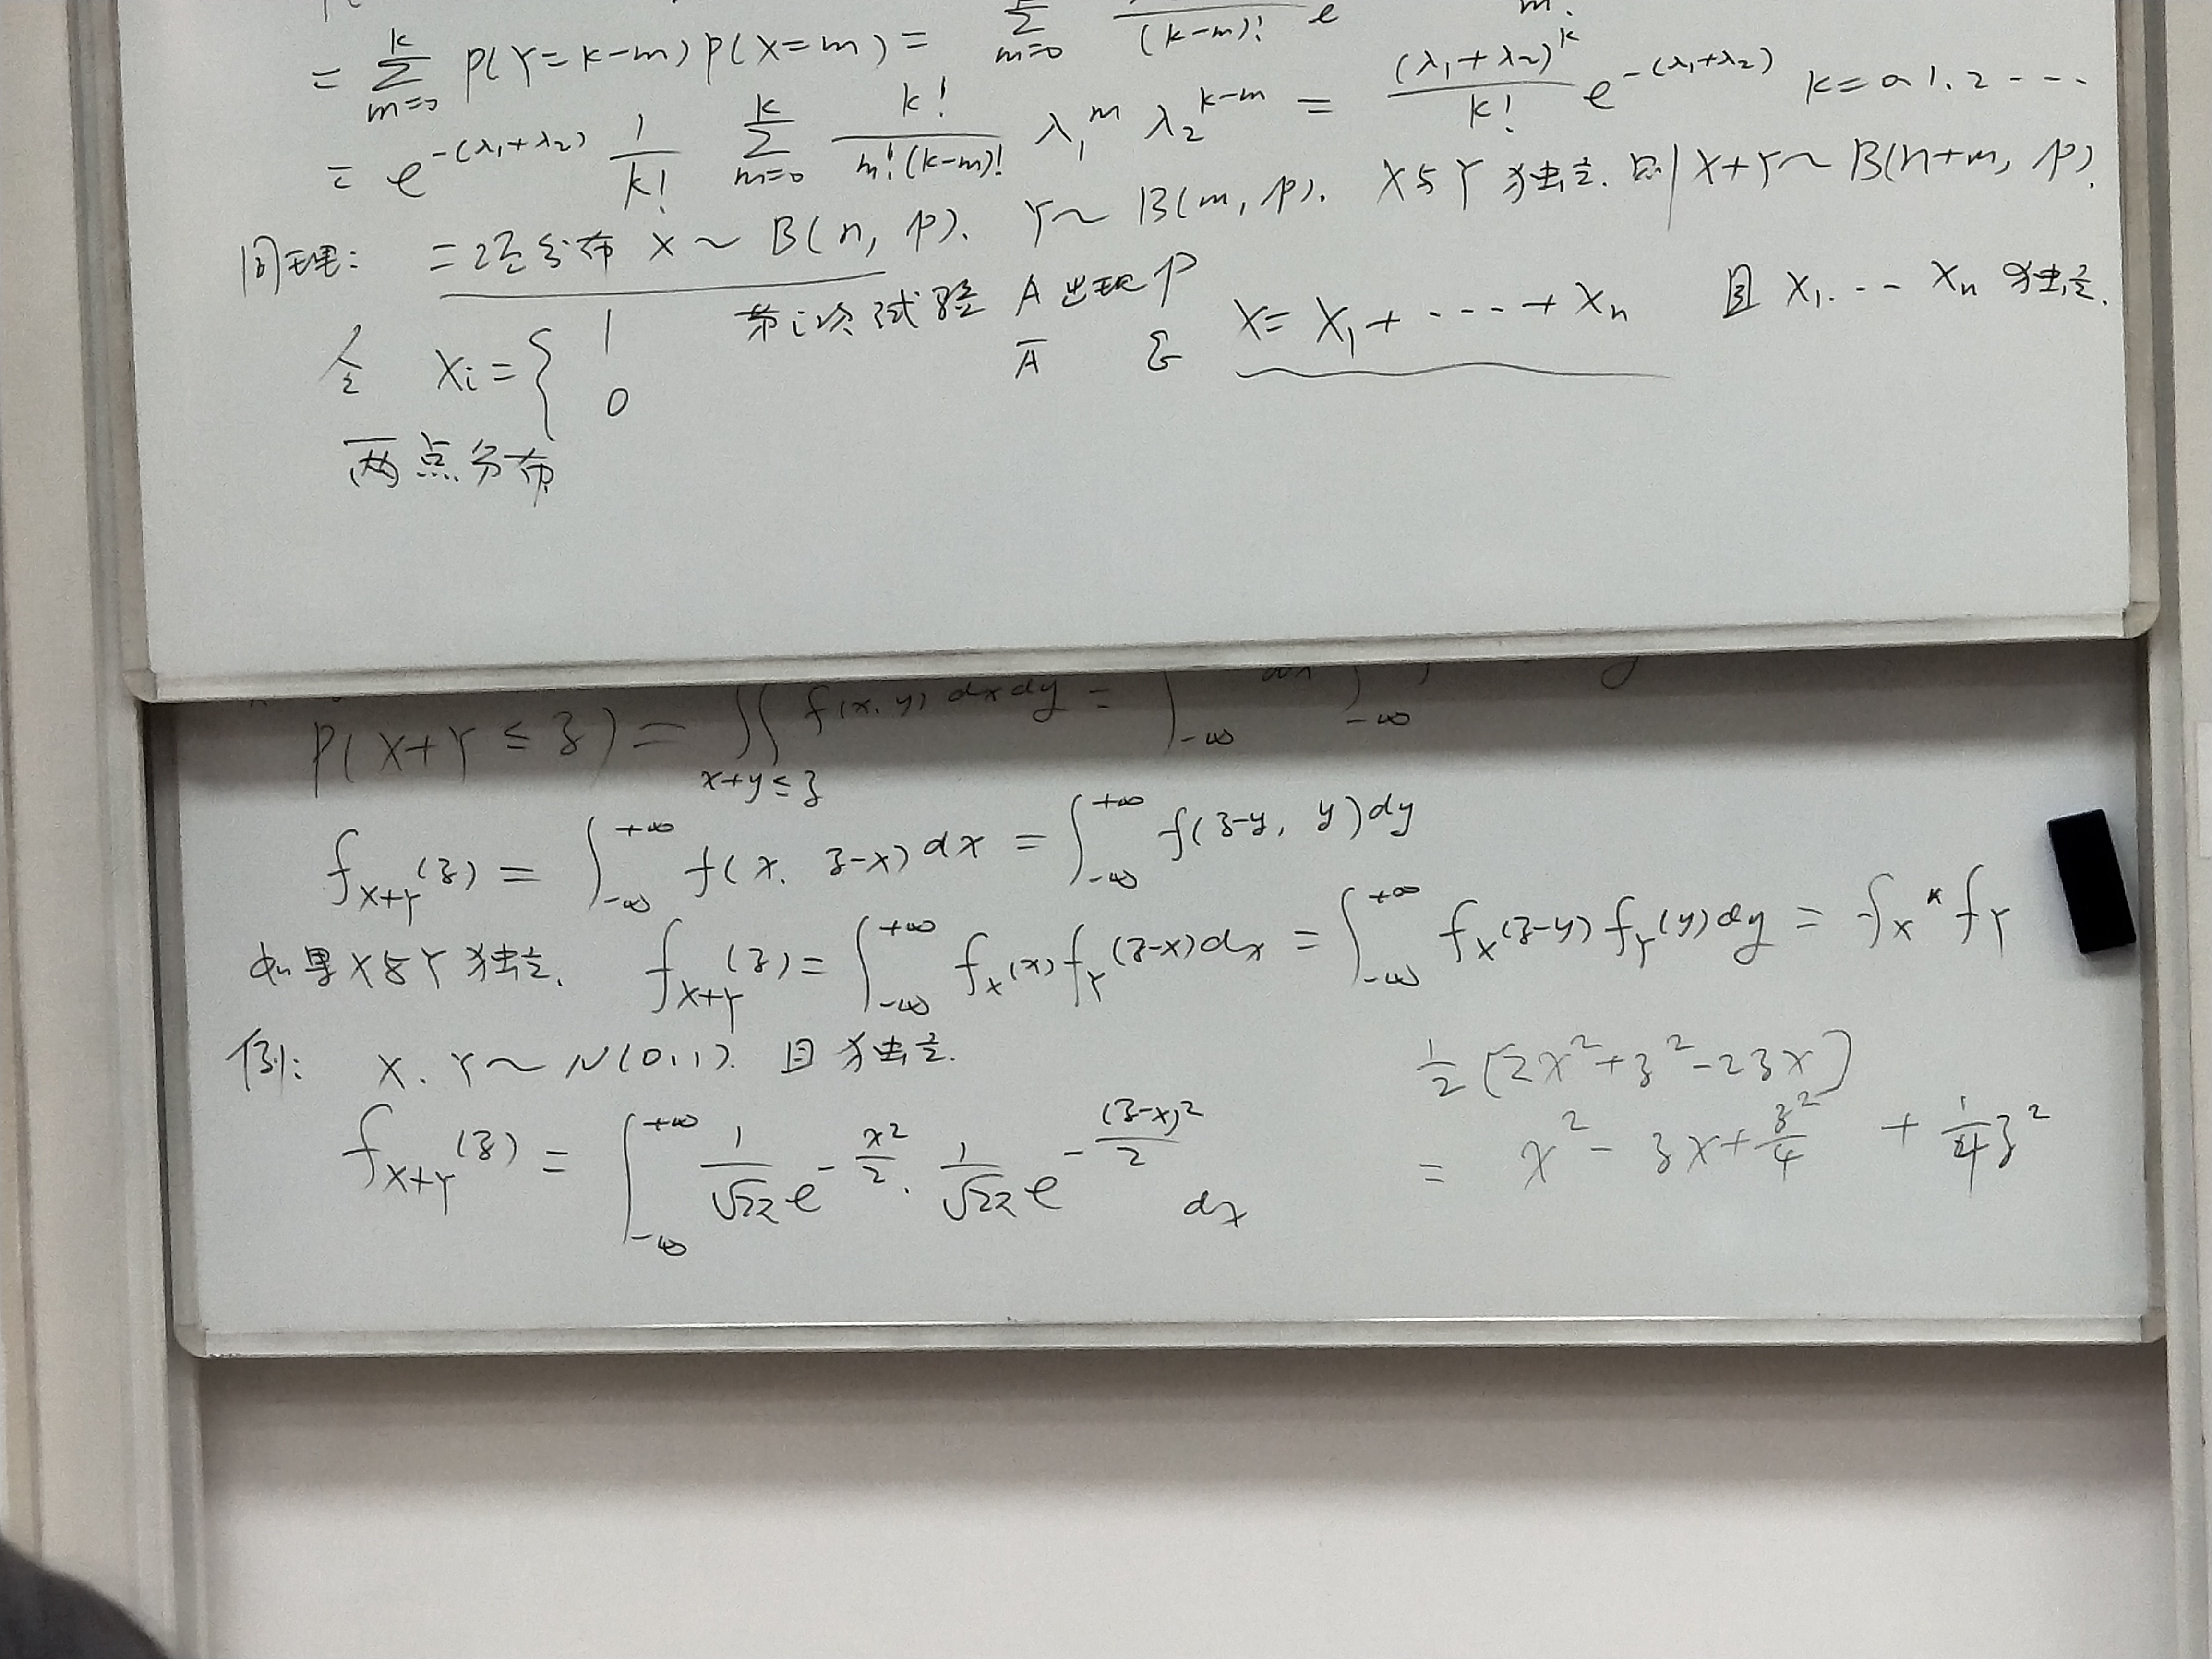 = \sum_{m=0}^{k} P(Y=k-m) P(X=m) = \sum_{m=0} \frac{}{(k-m)!} e m!
= e^{-(λ₁+λ₂)} \frac{1}{k!} \sum_{m=0}^{k} \frac{k!}{m!(k-m)!} λ₁^m λ₂^{k-m} = \frac{(λ₁+λ₂)^k}{k!} e^{-(λ₁+λ₂)} k=0,1,2----
同理: 二项分布 X~B(n, p). Y~B(m, p). X与Y独立. 则X+Y~B(n+m, p).
令 X_i = { 1 第i次试验 A出现 P
0 Ā q
X = X₁+----+X_n 且 X₁.-- X_n 独立.
两点分布
P(X+Y≤z) = \iint_{x+y≤z} f(x,y) dxdy = \int_{-∞} dx \int_{-∞}
f_{X+Y}(z) = \int_{-∞}^{+∞} f(x, z-x) dx = \int_{-∞}^{+∞} f(z-y, y) dy
如果X与Y独立. f_{X+Y}(z) = \int_{-∞}^{+∞} f_X(x) f_Y(z-x) dx = \int_{-∞}^{+∞} f_X(z-y) f_Y(y) dy = f_X * f_Y
例: X, Y ~ N(0,1). 且独立.
f_{X+Y}(z) = \int_{-∞}^{+∞} \frac{1}{\sqrt{2π}} e^{-\frac{x²}{2}} · \frac{1}{\sqrt{2π}} e^{-\frac{(z-x)²}{2}} dx
\frac{1}{2} (2x²+z²-2zx)
= x² - zx + \frac{z²}{4} + \frac{1}{4} z²